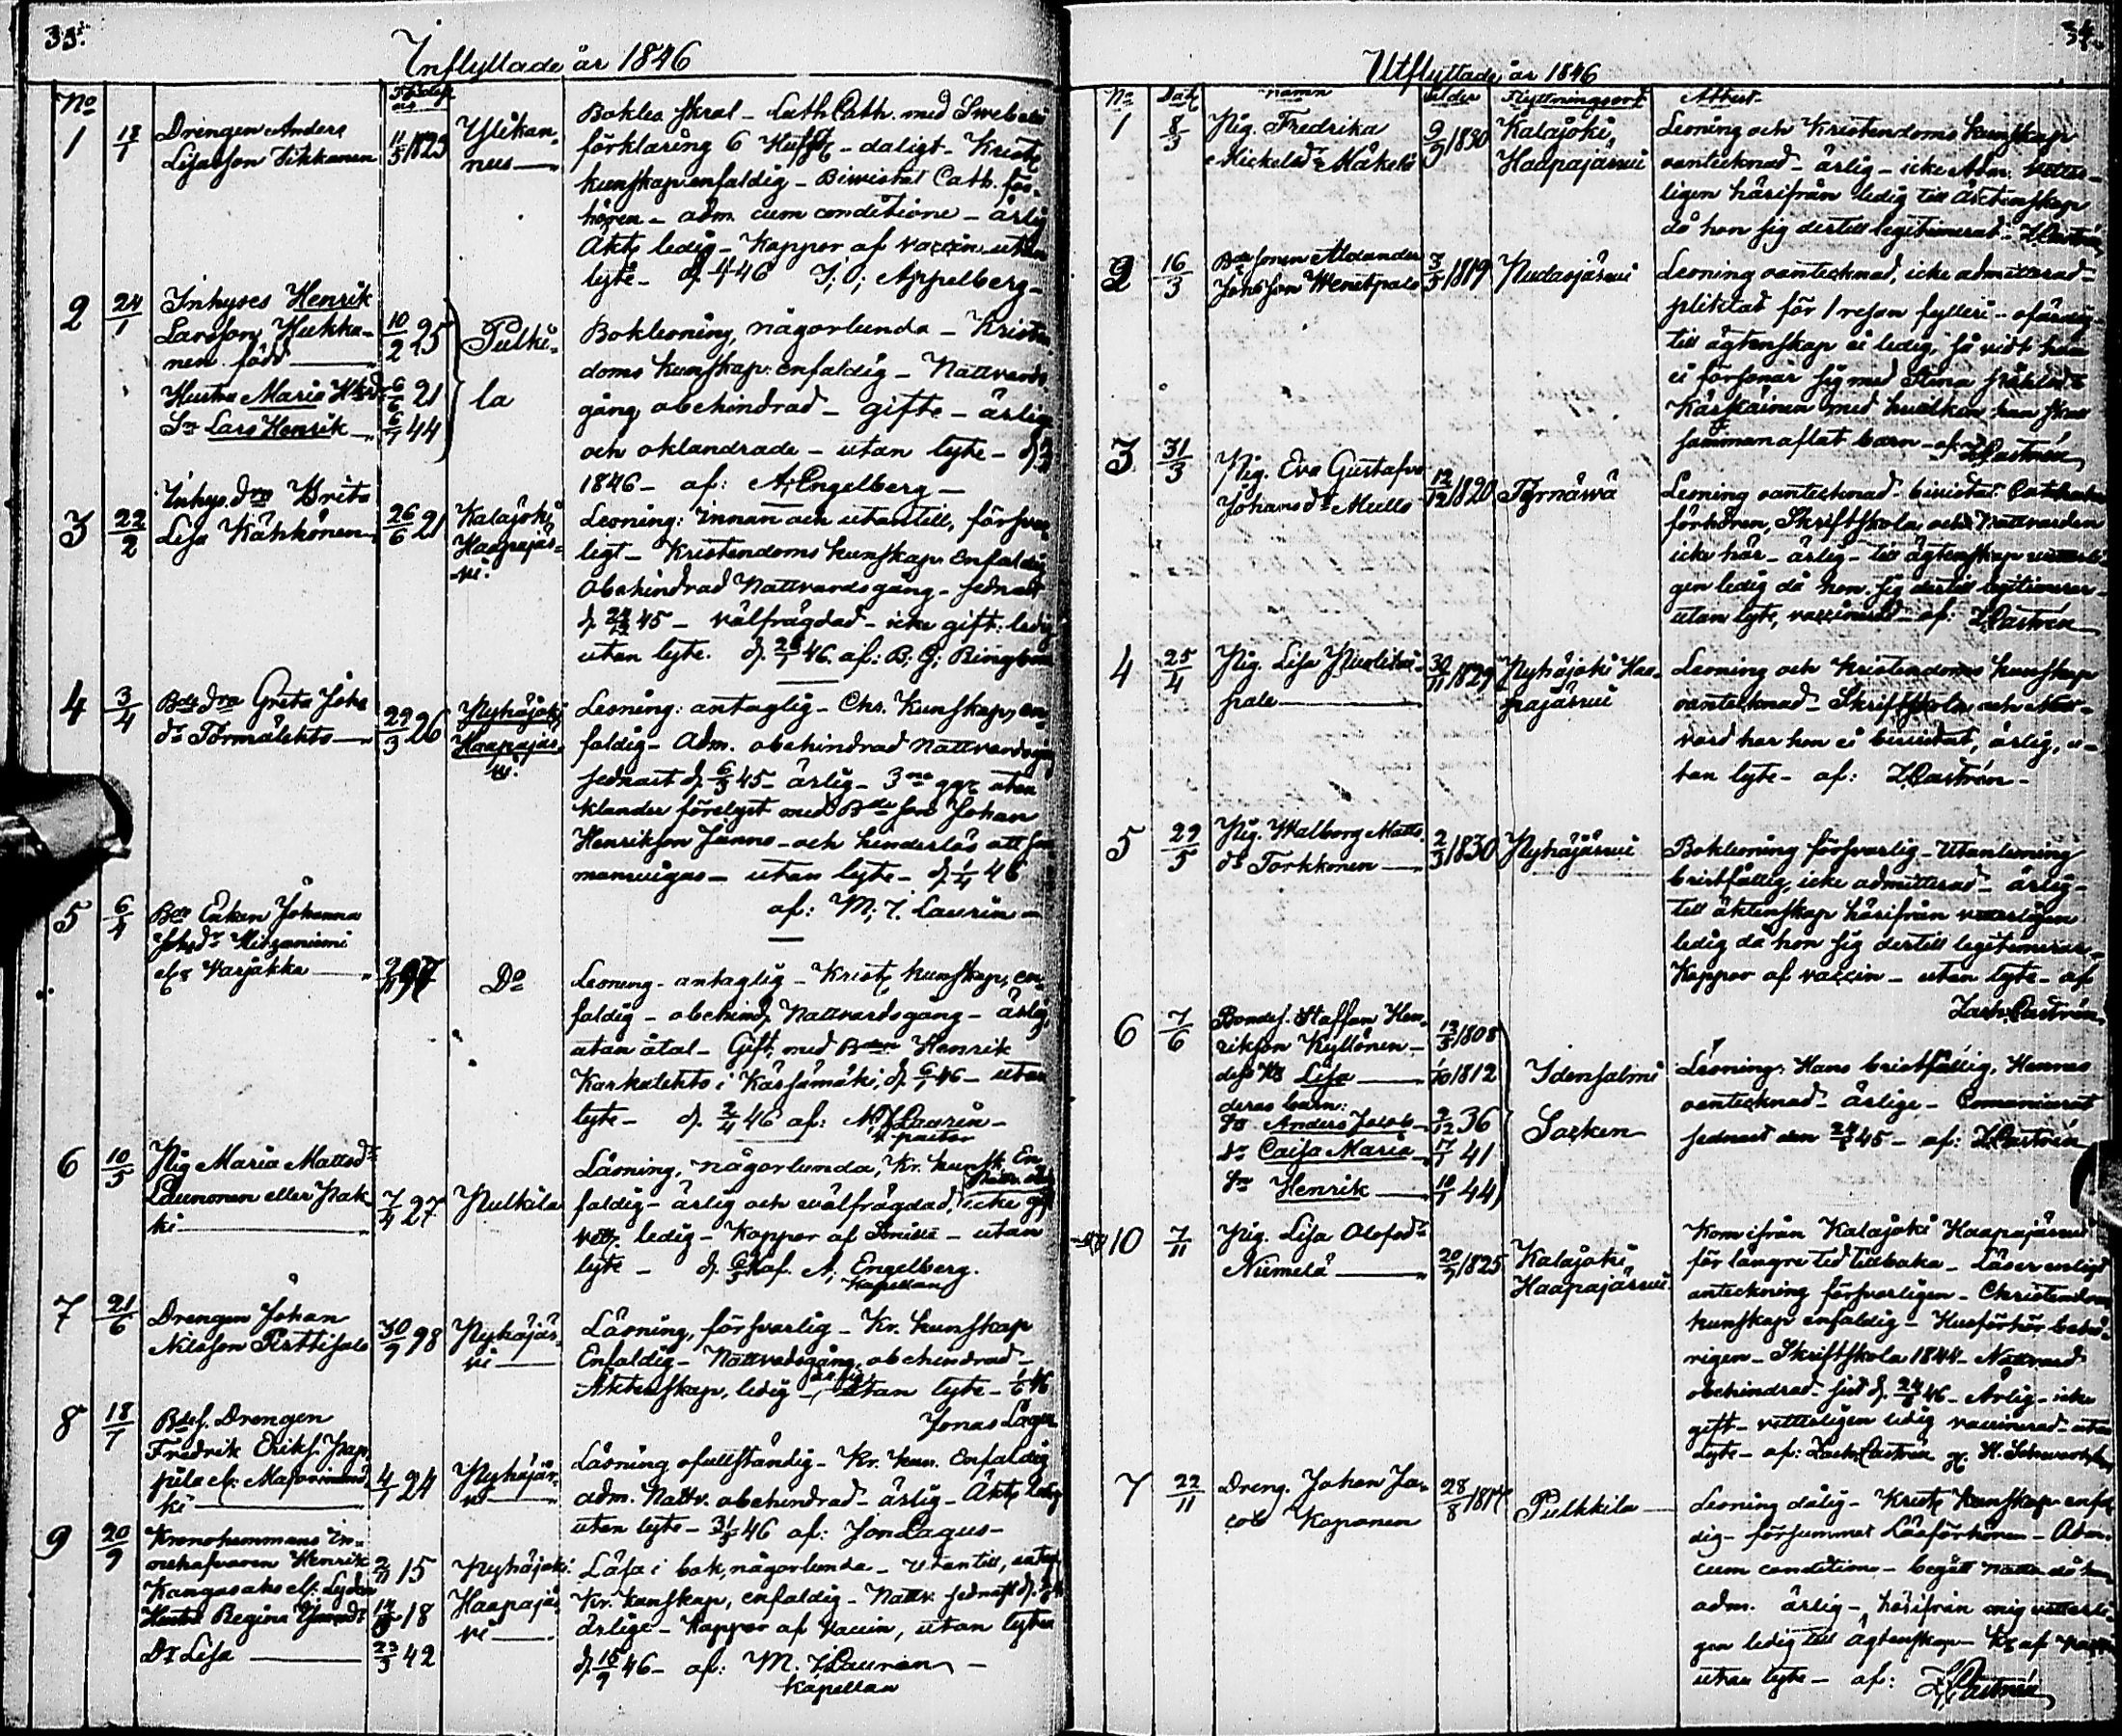 33.
Inflyttade år 1846
No
1 18/1 Drengen Anders
Lisasson Tikkanen 11/3 1823 Ylikan-
nus
förklaring 6 - daligt - Krist
kunskap enfaldig - Biwistat Cath. för-
hören - adm. cum conditione - ärlig
Äkts ledig - Koppor af vaccin utan
lyte - 46 Appelberg -
2 24/1 Inhyses Henrik
Larsson Hukka-
nen född 10/2 25 Pulki-
Hustru Maria 6/6 21 la
Sn Lars Henrik 44
Boklesning, någorlunda - Kristen
doms kunskap: enfaldig - Nattvards
gång obehindrad - gifte - ärlige
och oklandrade - utan lyte -
1846 - af: A. Engelberg -
3 22/2 Inhys. dra Brita
Lisa Kähkönen 26/6 21 Kalajoki
Haapajär-
vi.
Lesning: innan och utantill, försvar
ligt - Kristendoms kunskap enfaldig
obehindrad Nattvardsgång - sednast
45 - välfrägdad - icke gift: ledig
utan lyte. 46. af: B: G:
4 3/4 Bde dra Greta Joh
dr Törmälehto 29/3 26 Pyhäjoki
Haapajär
vi.
Lesning: antaglig - Chr. Kunskap, en-
faldig - Adm. obehindrad nattvardsgång
sednast d. 6/3 45 - ärlig - 3ne ggr utan
klander förelyst med Bde son Johan
Henrikson Junno - och hinderlös att sam
manvigas - utan lyte - d. 1/4 46
af: M; J. Laurin -
5 6/4 Bde Enkan Johanna
Johsdr
els Varjakka 97 Do
Lesning - antaglig - Krist kunskap, en-
faldig - obehind. Nattvardsgång - ärlig,
utan åtal - Gift med Bden Henrik
Karkulehto i Kärsämäki, d. 6/1 46 - utan
lyte - d. 2/4 46 af: M J Laurin -
v pastor
6 10/5 Pig Maria Mattsdr
Launonen eller Pak-
ki 7/4 27 Pulkila
Läsning, någorlunda, Kr. kunsk. En-
faldig - ärlig och välfrägdad, icke gift
ledig - Koppor af - utan
lyte - d. af. A: Engelberg.
Kapellan
7 21/6 Drengen Johan
Nilsson Pirttisalo 30/7 98 Pyhäjär-
vi
Läsning, försvarlig - Kr. kunskap
Enfaldig - Nattvardsgång, obehindrad -
Äktenskap, ledig - ärlig utan lyte - 1/6 46
Jonas Lagus
8 18/7 Bdes. Drengen
Fredrik Eriks. Pap-
pila
ki 4/7 24 Pyhäjär-
vi
Läsning ofullständig - Kr. kun. Enfaldig
adm. Nattv. obehindrad - ärlig - Äkts ledig
utan lyte - 46 af: Jon Lagus -
9 20/9 Kronohemmans In-
nehafvaren Henrik 2/11 15 Pyhäjoki
Kangasaho els: Lyden
Hustru Regina 18 Haapajär
vi
Dr Lisa 23/3 42
Läsa i bok, någorlunda - Utantill, antag
Kr. kunskap, enfaldig - Nattv. sednast d.
ärlige - Koppor af vaccin, utan lyten
d. 15/9 46 - af: M. J. Lauren -
Kapellan
34.
Utflyttade år 1846
No Dat namn ålder Flyttningsort Attest
1 8/3 Pig. Fredrika
Mickelsdr Mäkelä 9/9 1830 Kalajoki,
Haapajärvi
Lesning och Kristendoms kunskap
vantecknad - ärlig - icke Adm. vetter-
ligen härifrån ledig till äktenskap
då hon sig dertill legitimerat - Z Castrén
2 16/3 Bde sonen Alexander
Johsson Wenetpalo 3/3 1819 Pudasjärvi
Lesning vantecknad, icke admitterad -
pliktat för 1 resan fylleri - ofärdig -
till ägtenskap ej ledig, så vidt han
ei försonar sig med Stina
Kärkäinen med hvilken han skall
sammanaflat barn - af Z Castrén
3 31/3 Pig. Eva Gustafva
Johansdr Mullo 12/12 1820 Tyrnäwä
Lesning vantecknad - bivistat
förhören, Skriftskola och Nattvarden
icke här - ärlig - till ägtenskap vetterli-
gen ledig då hon sig dertill legitimerar -
utan lyte, vaccinerad - af: Z Castrén
4 25/4 Pig. Lisa
palo 30/11 1829 Pyhäjoki Haa-
pajärvi
Lesning och Kristendoms kunskap
vantecknad - Skriftskola och Natt-
vard har hon ej bivistat, ärlig, u-
tan lyte - af: Z Castrén -
5 29/5 Pig. Walborg Matts
dr Torkkonen 2/3 1830 Pyhäjärvi
Boklesning försvarlig - Utanlesning
bristfällig, icke admitterad - ärlig -
till äktenskap härifrån vetterligen
ledig då hon sig dertill legitimerar -
Koppor af vaccin - utan lyte - af
Zach. Castrén
6 7/6 Bondes. Staffan Hen-
rikson Kyllönen 13/3 1808
dess Hu Lisa 1/10 1812 Idensalmi
deras barn:
So Anders Jacob 2/12 36 Socken
Dr Caisa Maria 17/7 41
Sn Henrik 10/1 44
Lesning: Hans bristfällig, Hennes
vantecknad - ärlige - Comunicerat
sednast den 45 - af: Z Castrén
10 7/11 Pig. Lisa Olofsdr
Niemelä 20/7 1825 Kalajoki
Haapajärvi
Kom ifrån Kalajoki Haapajärvi
för längre tid tillbaka - Läser enligt
anteckning försvarligen - Christendoms
kunskap enfaldig - Husförhör behö-
rigen - Skriftskola 1844 - Nattvard
obehindrad - sist d. 24/6 46 - Ärlig - icke
gift - vetterligen ledig vaccinerad - utan
Lyte - af: Zach. Castrén
7 22/11 Dreng. Johan Ja-
cob Koponen 28/8 Pulkkila
Lesning dålig - Krist kunskap enfal
dig - försummat Läsförhören - Adm.
cum conditione - begått natt
adm. ärlig - härifrån mig vetterli-
gen ledig till Ägtenskap - af
utan lyte - af: Z Castrén